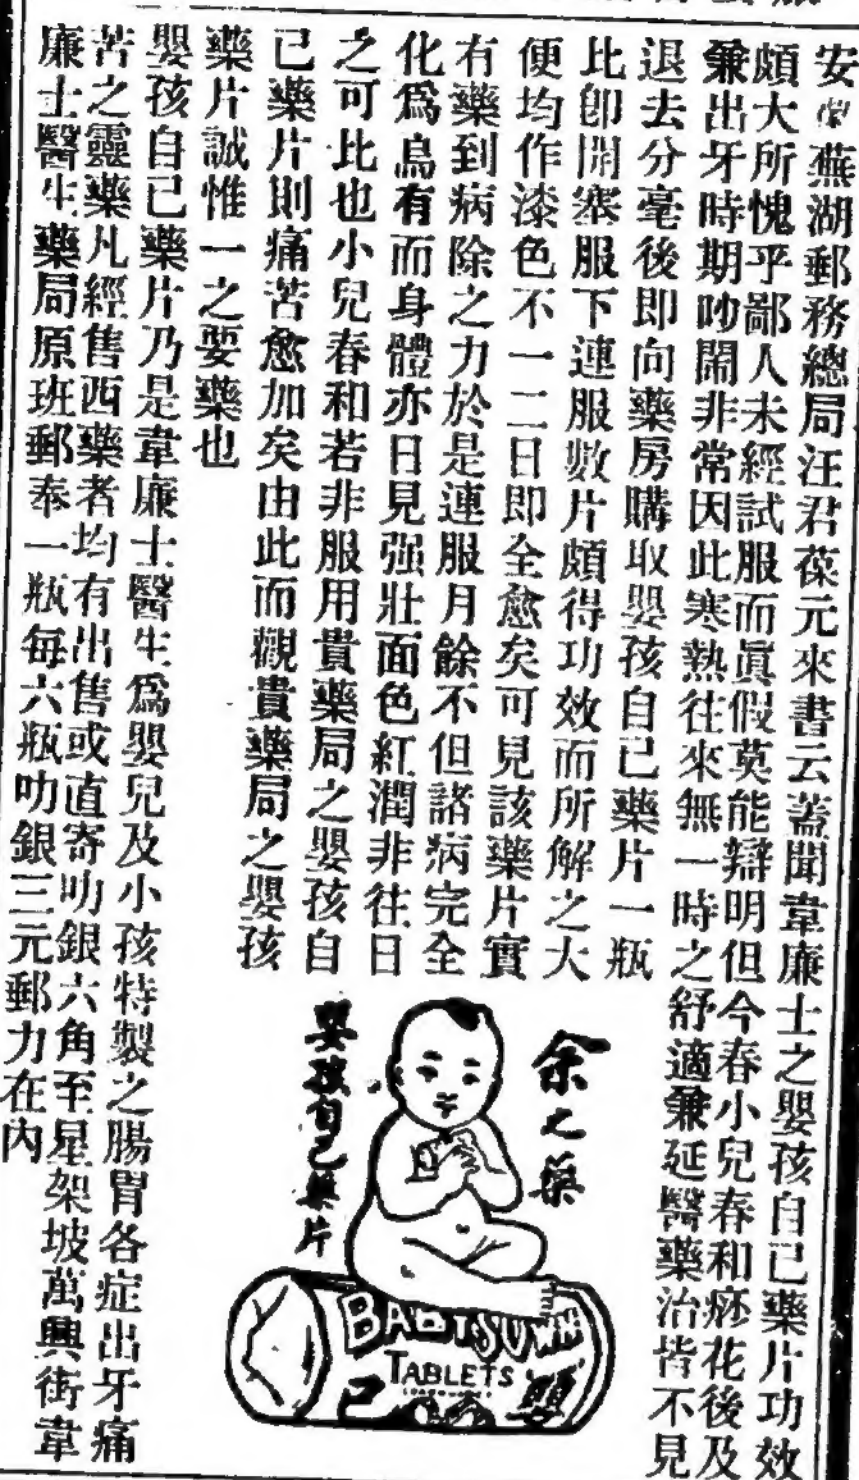 安徽蕪湖郵務總局汪君葆元來書云蓋聞韋廉士之嬰孩自己藥片功效
頗大所愧乎鄙人未經試服而眞假莫能辯明但今春小兒春和痧花後及
兼出牙時期吵鬧非常因此寒熱往來無一時之舒適兼延醫藥治皆不見
退去分毫後即向藥房購取嬰孩自己藥片一瓶
比卽開塞服下連服數片頗得功效而所解之大
便均作漆色不一二日即全愈矣可見該藥片實
有藥到病除之力於是連服月餘不但諸病完全
化爲烏有而身體亦日見强壯面色紅潤非往日
之可比也小兒春和若非服用貴藥局之嬰孩自
已藥片則痛苦愈加矣由此而觀貴藥局之嬰孩
藥片誠惟一之要藥也
嬰孩自已藥片乃是韋廉士醫生爲嬰兒及小孩特製之腸胃各症出牙痛
苦之靈藥凡經售西藥者均有出售或直寄叻銀六角至星架坡萬興街韋
廉士醫生藥局原班郵奉一瓶每六瓶叻銀三元郵力在內
余之藥
嬰孩自己藥片
BABY'S OWN
TABLETS
己
嬰